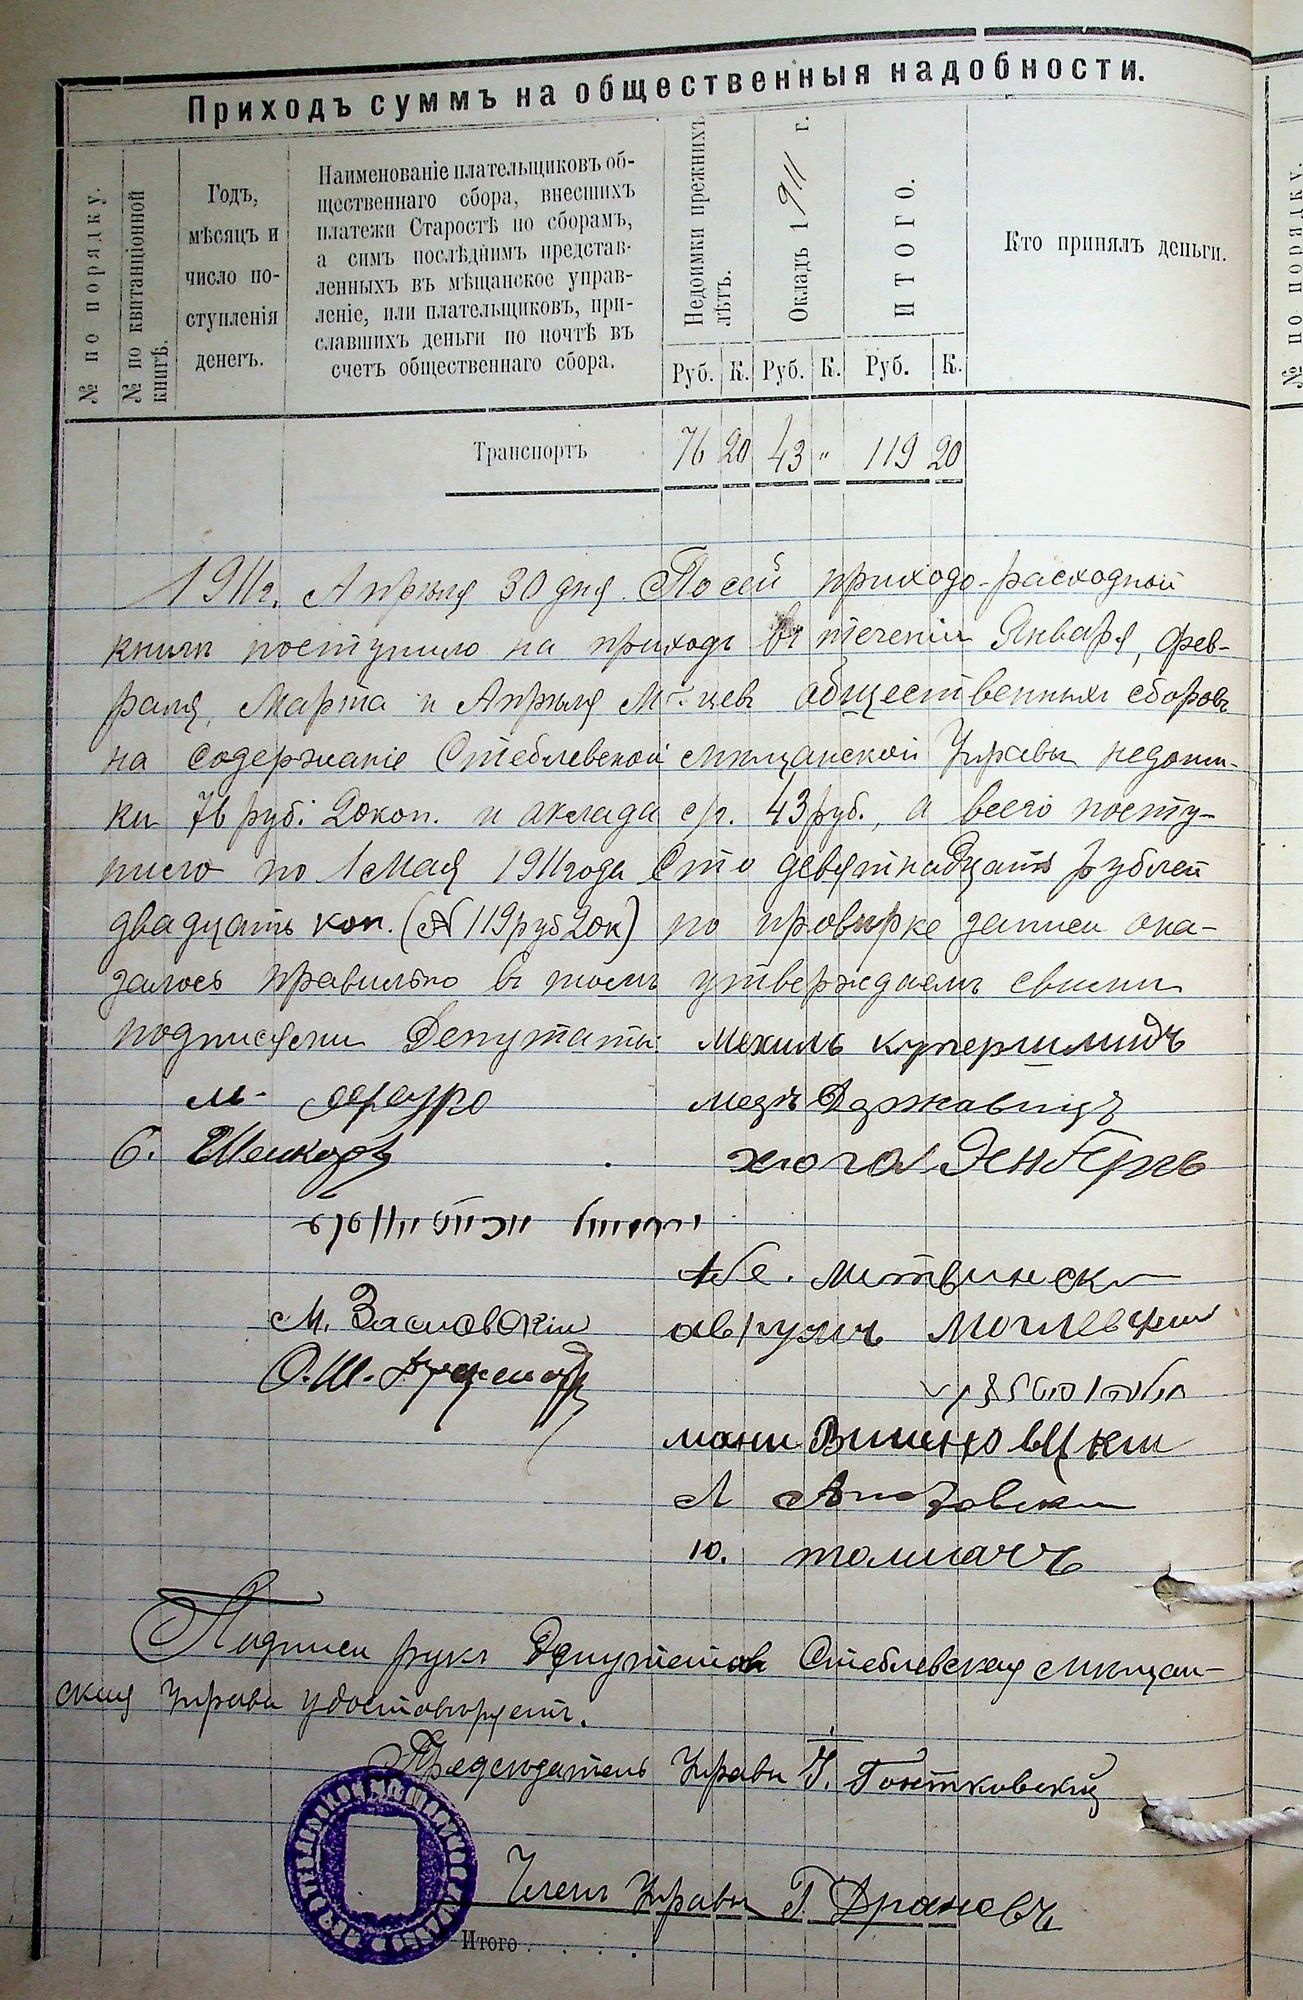 Приходъ суммъ на общественныя надобности.
№ по порядку.
№ по квитанціонной
книгѣ.
Годъ,
мѣсяцъ и
число по-
ступленія
денегъ.
Наименованіе плательщиковъ об-
щественнаго сбора, внесшихъ
платежи Старостѣ по сборамъ,
а симъ послѣднимъ представ-
ленныхъ въ мѣщанское управ-
леніе, или плательщиковъ, при-
славшихъ деньги по почтѣ въ
счетъ общественнаго сбора.
Недоимки прежнихъ
лѣтъ.
Окладъ 1911 г.
ИТОГО.
Кто принялъ деньги.
Руб. К. Руб. К. Руб. К.
Транспортъ 76 20 43 " 119 20
1911г. Апрѣля 30 дня По сей приходо-расходной
книгѣ поступило на приходъ въ теченіи Января, Фев-
раля, Марта и Апрѣля М-цевъ общественныхъ сборовъ
на содержаніе Стеблевской мѣщанской Управы недоим-
ки 76 руб. 20 коп. и оклада с/г. 43 руб., а всего посту-
пило по 1 Мая 1911 года Сто девятнадцать рублей
двадцать коп. (119 руб 20 к) по провѣрке записи ока-
залось правильно въ томъ утверждаемъ своими
подписями Депутаты: Мехиль Купершмидъ
М.
Б.
Абе. Литвински
М. Заславскій
О. Ш.
Аврумъ
мани Вишновцкій
Л
Ю. толмачъ
Подписи рукъ Депутатовъ Стеблевская мѣщан-
ская Управа удостовѣряетъ.
Предсѣдатель Управы І. Гонтковскій
Членъ Управы Г. Драновъ
Итого . . . .
№ по порядку.
№ п